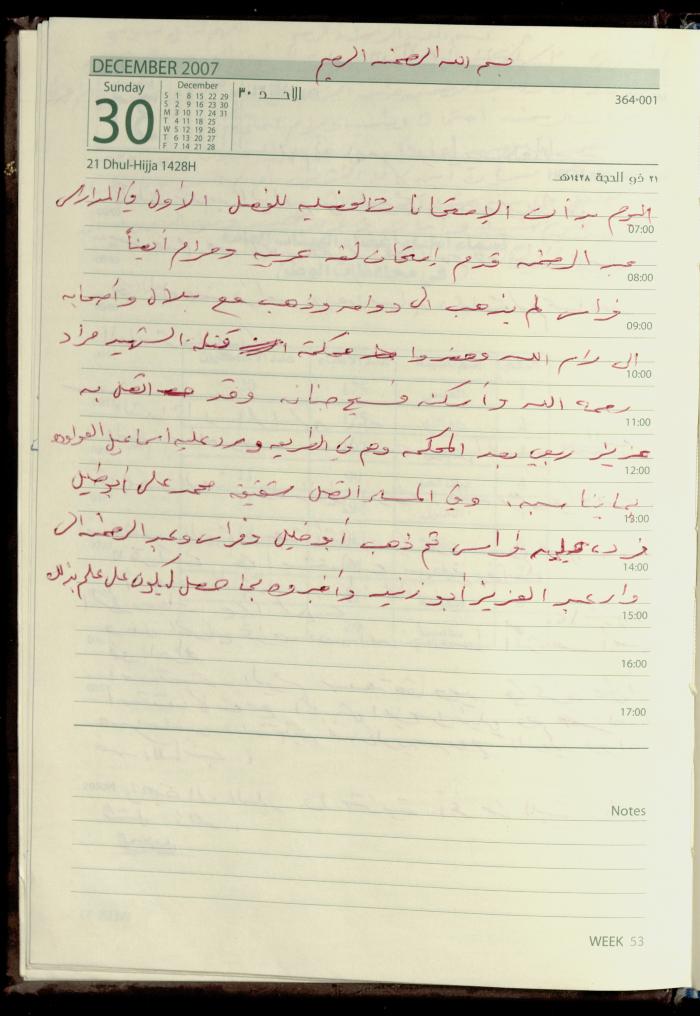 بسم الله الرحمن الرحيم
DECEMBER 2007
Sunday
30
December
S 1 8 15 22 29
S 2 9 16 23 30
M 3 10 17 24 31
T 4 11 18 25
W 5 12 19 26
T 6 13 20 27
F 7 14 21 28
الأحد ٣٠
364-001
21 Dhul-Hijja 1428H
٢١ ذو الحجة ١٤٢٨هـ
اليوم بدأت الإمتحانات النصفيه للفصل الأول في المدارس
07:00
عبد الرحمن قدم إمتحان لغه عربيه ومرام أيضاً
08:00
فراس لم يذهب الى دوامه وذهب مع بلال وأصحابه
09:00
الى رام الله وحضروا محكمة قتلة الشهيد مراد
10:00
رحمه الله وأسكنه فسيح جنانه وقد اتصل به
11:00
عزيز ربعي بعد المحكمه وهم في الطريق ورد عليه اسماعيل العواوده
12:00
بما يناسبه. وفي المساء اتصل شقيقه محمد على أبو خليل
13:00
فرد عليه فراس ثم ذهب أبو خليل وفراس وعبد الرحمن الى
14:00
دار عبد العزيز أبو زنيد وأخبروه بما حصل ليكون على علم بذلك
15:00
16:00
17:00
Notes
WEEK 53